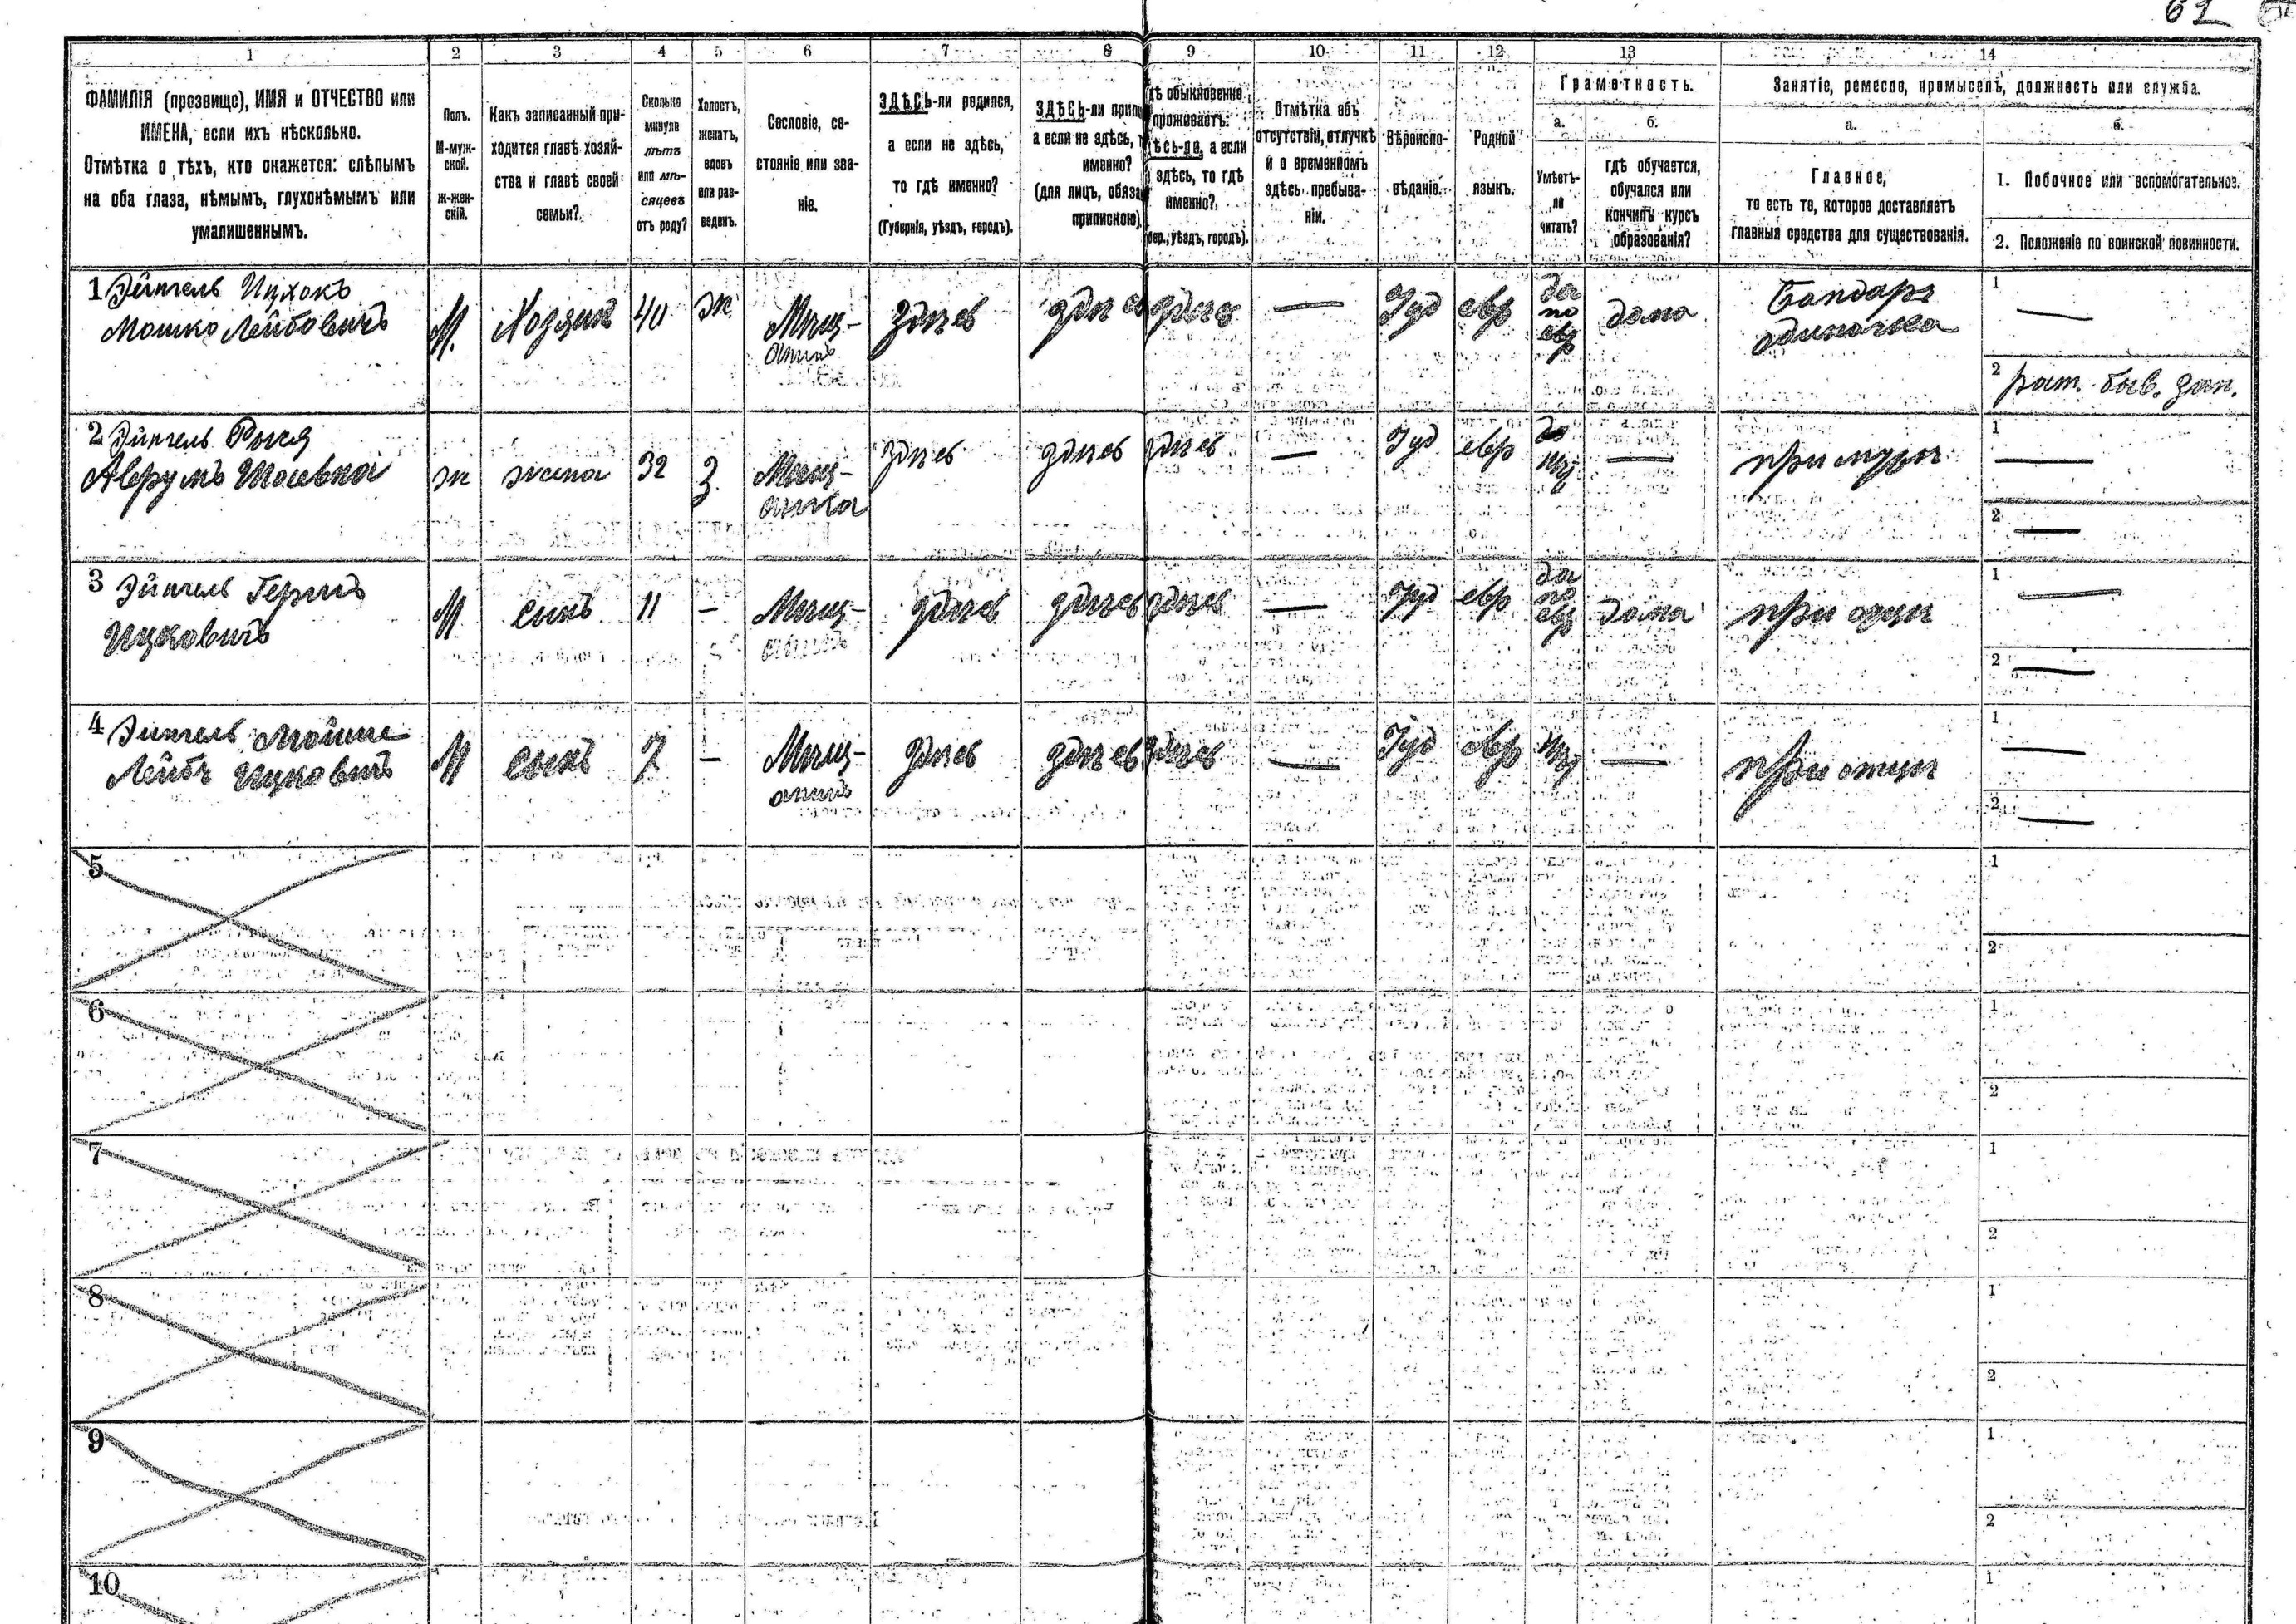 61
1 2 3 4 5 6 7 8 9 10 11 12 13 14
ФАМИЛІЯ (прозвище), ИМЯ и ОТЧЕСТВО или
ИМЕНА, если ихъ нѣсколько.
Отмѣтка о тѣхъ, кто окажется: слѣпымъ
на оба глаза, нѣмымъ, глухонѣмымъ или
умалишеннымъ.
Полъ.
М-муж-
ской.
ж-жен-
скій.
Какъ записанный при-
ходится главѣ хозяй-
ства и главѣ своей
семьи?
Сколько
минуло
лѣтъ
или мѣ-
сяцевъ
отъ роду?
Холостъ,
женатъ,
вдовъ
или раз-
веденъ.
Сословіе, со-
стояніе или зва-
ніе.
ЗДѢСЬ-ли родился,
а если не здѣсь,
то гдѣ именно?
(Губернія, уѣздъ, городъ).
ЗДѢСЬ-ли припи
а если не здѣсь, т
именно?
(для лицъ, обяза
припискою)
дѣ обыкновенно
проживаетъ:
ѣсь-ли, а если
здѣсь, то гдѣ
именно?
бер., уѣздъ, городъ).
Отмѣтка объ
отсутствіи, отлучкѣ
и о временномъ
здѣсь пребыва-
ніи.
Вѣроиспо-
вѣданіе.
Родной
языкъ.
Грамотность.
а.
Умѣетъ-
ли
читать?
б.
гдѣ обучается,
обучался или
кончилъ курсъ
образованія?
Занятіе, ремесло, промыселъ, должность или служба.
а.
Главное,
то есть то, которое доставляетъ
главныя средства для существованія.
б.
1. Побочное или вспомогательное.
2. Положеніе по воинской повинности.
1 Эйтель Ицхокъ
Мошко Лейбовичъ
М.
Хозяинъ
40
ж
Мѣщ-
анинъ
здѣсь
здѣсь
здѣсь
—
Іуд
евр
да
по
евр
дома
Бондарь
одиночка
1 —
2 рат. быв. зап.
2 Эйтель Рыся
Аврумъ
ж
жена
32
з.
Мѣщ-
анка
здѣсь
здѣсь
здѣсь
—
Іуд
евр
нѣт
—
при мужѣ
1 —
2 —
3 Эйтель Гершъ
Ицковичъ
М
сынъ
11
—
Мѣщ-
анинъ
здѣсь
здѣсь
здѣсь
—
Іуд
евр
да
по
евр
дома
при отцѣ
1 —
2 —
4 Эйтель Мойше
Лейбъ Ицковичъ
М
сынъ
7
—
Мѣщ-
анинъ
здѣсь
здѣсь
здѣсь
—
Іуд
евр
нѣт
—
при отцѣ
1 —
2 —
5
1
2
6
1
2
7
1
2
8
1
2
9
1
2
10
1